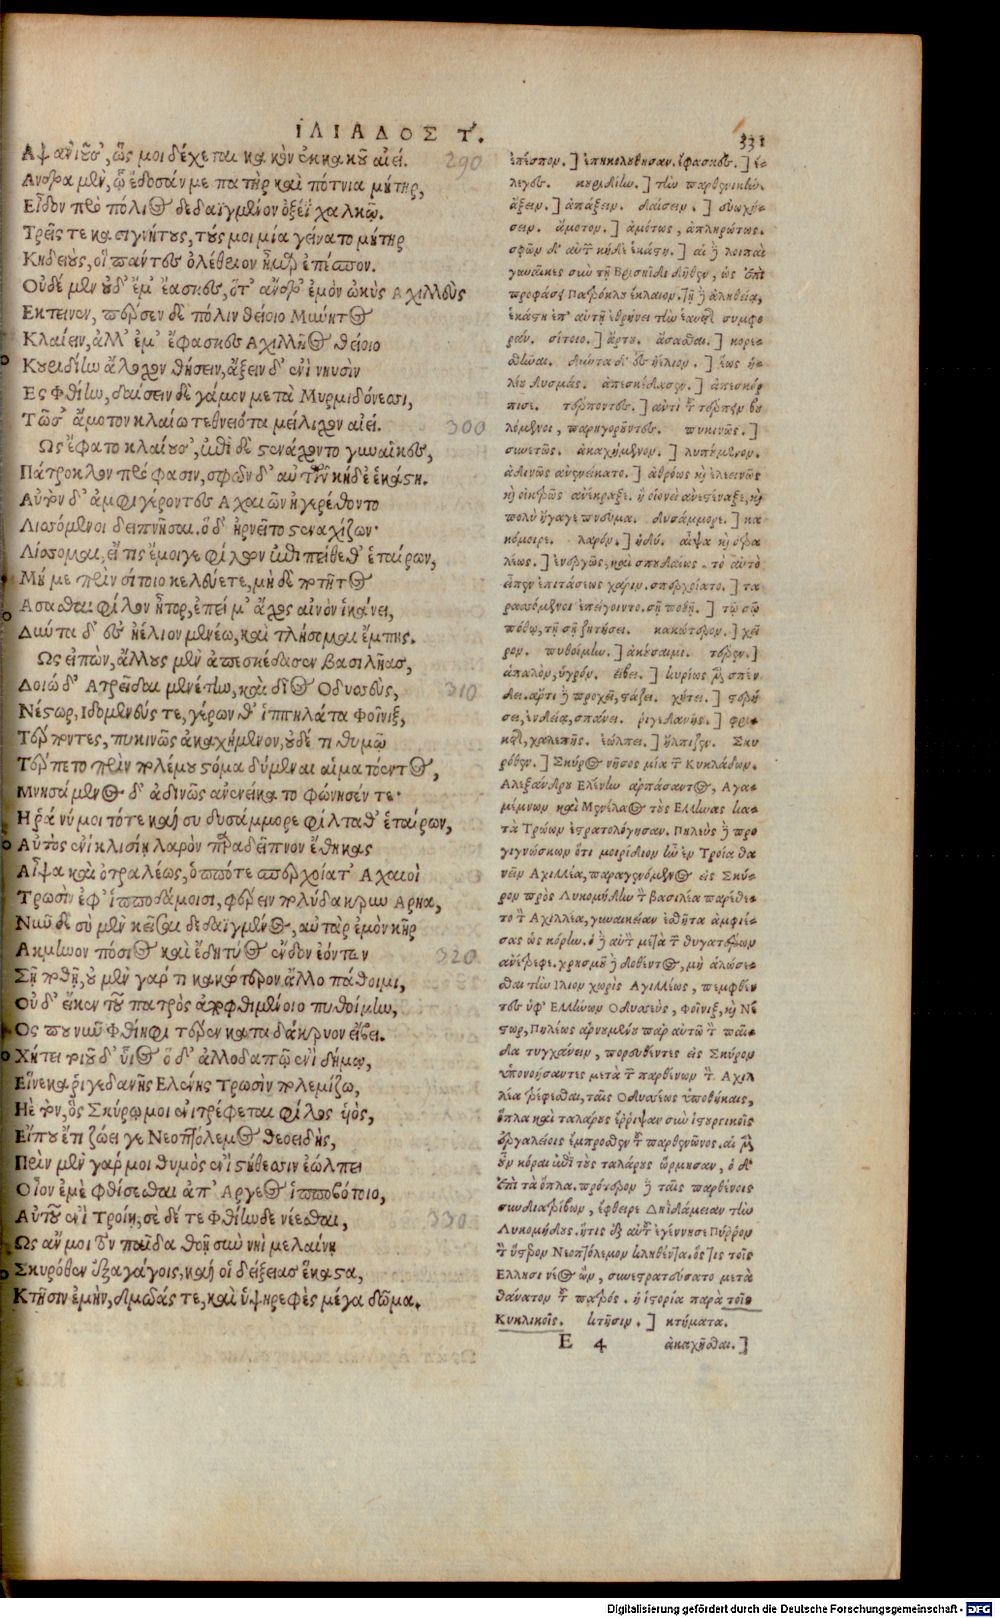 ΙΛΙΑΔΟΣ Τ.
331
Αψ ἀνιοῦσ', ὥς μοι δέχεται κακὸν ἐκ κακοῦ αἰεί. 290
Ανδρα μὲν, ᾧ ἔδοσάν με πατὴρ καὶ πότνια μήτηρ,
Εἶδον πρὸ πόλιος δεδαϊγμένον ὀξέϊ χαλκῷ.
Τρεῖς τε κασιγνήτους, τούς μοι μία γείνατο μήτηρ
Κηδείους, οἳ πάντες ὀλέθριον ἦμαρ ἐπέσπον.
Οὐδὲ μὲν οὐδ' ἔμ' ἔασκες, ὅτ' ἄνδρ' ἐμὸν ὠκὺς Αχιλλεὺς
Εκτεινεν, πέρσεν δὲ πόλιν θείοιο Μύνητος
Κλαίειν, ἀλλ' ἔμ' ἔφασκες Αχιλλῆος θείοιο
Κουριδίην ἄλοχον θήσειν, ἄξειν δ' ἐνὶ νηυσὶν
Ες Φθίην, δαίσειν δὲ γάμον μετὰ Μυρμιδόνεσσι,
Τῶ σ' ἄμοτον κλαίω τεθνειότα μείλιχον αἰεί. 300
Ως ἔφατο κλαίουσ', ἐπὶ δὲ στενάχοντο γυναῖκες,
Πάτροκλον πρόφασιν, σφῶν δ' αὐτῶν κήδε' ἑκάστη.
Αὐτὸν δ' ἀμφὶ γέροντες Αχαιῶν ἠγερέθοντο
Λισσόμενοι δειπνῆσαι. ὁ δ' ἠρνεῖτο στεναχίζων·
Λίσσομαι, εἴ τις ἔμοιγε φίλων ἐπιπείθεθ' ἑταίρων,
Μή με πρὶν σίτοιο κελεύετε, μὴ δὲ ποτῆτος
Ασασθαι φίλον ἦτορ, ἐπεί μ' ἄχος αἰνὸν ἱκάνει,
Δύντα δ' ἐς ἠέλιον μενέω, καὶ τλήσομαι ἔμπης.
Ως εἰπὼν, ἄλλους μὲν ἀπεσκέδασεν βασιλῆας,
Δοιὼ δ' Ατρεῖδαι μενέτην, καὶ δῖος Οδυσσεὺς, 310
Νέστωρ, Ιδομενεύς τε, γέρων θ' ἱππηλάτα Φοῖνιξ,
Τέρποντες, πυκινῶς ἀκαχήμενον, οὐδέ τι θυμῷ
Τέρπετο πρὶν πολέμου στόμα δύμεναι αἱματόεντος,
Μνησάμενος δ' ἁδινῶς ἀνενείκατο φώνησέν τε·
Η ῥά νύ μοι τότε καὶ συ δυσάμμορε φίλταθ' ἑταίρων,
Αὐτὸς ἐνὶ κλισίῃ λαρὸν παρὰ δεῖπνον ἔθηκας
Αἶψα καὶ ὀτραλέως, ὁππότε σπερχοίατ' Αχαιοὶ
Τρωσὶν ἐφ' ἱπποδάμοισι, φέρειν πολύδακρυν Αρηα,
Νῦν δὲ σὺ μὲν κεῖσαι δεδαϊγμένος, αὐτὰρ ἐμὸν κῆρ
Ακμηνον πόσιος καὶ ἐδητύος ἔνδον ἐόντων 320
Σῇ ποθῇ, οὐ μὲν γάρ τι κακώτερον ἄλλο πάθοιμι,
Οὐ δ' εἴκεν τοῦ πατρὸς ἀποφθιμένοιο πυθοίμην,
Ος που νῦν Φθίηφι τέρεν κατὰ δάκρυον εἴβει.
Χήτει τοιοῦδ' υἷος ὁ δ' ἀλλοδαπῷ ἐνὶ δήμῳ,
Εἵνεκα ῥιγεδανῆς Ελένης Τρωσὶν πολεμίζω,
Ηὲ τὸν, ὃς Σκύρῳ μοι ἐνιτρέφεται φίλος υἱός,
Εἴπου ἔτι ζώει γε Νεοπτόλεμος θεοειδὴς,
Πρὶν μὲν γάρ μοι θυμὸς ἐνὶ στήθεσσιν ἐώλπει
Οἶον ἐμὲ φθίσεσθαι ἀπ' Αργεος ἱπποβότοιο,
Αὐτοῦ ἐνὶ Τροίῃ, σὲ δέ τε Φθίην δε νέεσθαι, 330
Ως ἄν μοι τὸν παῖδα θοῇ σὺν νηῒ μελαίνῃ
Σκυρόθεν ἐξαγάγοις, καὶ οἱ δείξειας ἕκαστα,
Κτῆσιν ἐμὴν, δμωάς τε, καὶ ὑψηρεφὲς μέγα δῶμα.
ἐπέσπον.] ἐπηκολούθησαν. ἔφασκες.] ἔ-
λεγες. κουριδίην.] τὴν παρθενικήν.
ἄξειν.] ἀπάξειν. δαίσειν.] εὐωχή-
σειν. ἄμοτον.] ἀμότως, ἀπληρώτως.
σφῶν δ' αὐτ κήδε' ἑκάστη.] αἱ ἢ λοιπαὶ
γυναῖκες σὺν τῇ Βρισηΐδι δῆθεν, ὡς ἐπὶ
προφάσει Πατρόκλου ἔκλαιον. τῇ ἢ ἀληθείᾳ,
ἑκάστη ἐπ' αὐτῇ ἐθρήνει τὴν ἑαυτῆς συμφο
ράν. σίτοιο.] ἄρτου. ἄσασθαι.] κορε-
σθῆναι. δύντα δ' ἐς ἠέλιον.] ἕως ἡ-
λίου δυσμάς. ἀπεσκέδασεν.] ἀπεσκόρ
πισε. τέρποντες.] ἀντὶ τοῦ τέρπειν βου
λόμενοι, παρηγοροῦντες. πυκινῶς.]
συνετῶς. ἀκαχήμενον.] λυπούμενον.
ἁδινῶς ἀνενείκατο.] ἀθρόως καὶ ἐλεεινῶς
καὶ οἰκτρῶς ἀνέκραξε. ἢ οἱονεὶ ἀνεστέναξε, καὶ
πολὺ ἤγαγε πνεῦμα. δυσάμμορε.] κα
κόμοιρε. λαρόν.] ἡδύ. αἶψα καὶ ὀτρα
λέως.] ἐνεργῶς, καὶ σπουδαίως. τὸ αὐτὸ
εἶπεν ἐπιτάσεως χάριν. σπερχοίατο.] τα
ρασσόμενοι ἐπείγοιντο. σῇ ποθῇ.] τῷ σῷ
πόθῳ, τῇ σῇ ζητήσει. κακώτερον.] χεῖ
ρον. πυθοίμην.] ἀκούσαιμι. τέρεν.]
ἁπαλὸν, ὑγρόν. εἴβει.] κυρίως μὲν σπέν
δει. ἄρτι ἢ προχεῖ, στάζει. χήτει.] στερή
σει, ἐνδείᾳ, σπάνει. ῥιγεδανῆς.] φρι-
κτῆς, χαλεπῆς. ἐώλπει.] ἤλπιζεν. Σκυ
ρόθεν.] Σκύρος νῆσος μία τῶν Κυκλάδων.
Αλεξάνδρου Ελένην ἁρπάσαντος, Αγα-
μέμνων καὶ Μενέλαος τοὺς Ελληνας κα-
τὰ Τρώων ἐστρατολόγησαν. Πηλεὺς ἢ προ
γιγνώσκων ὅτι μοιρίδιον ἦν ἐν Τροίᾳ θα
νεῖν Αχιλλέα, παραγενόμενος εἰς Σκύ-
ρον πρὸς Λυκομήδην τὸν βασιλέα παρέθε-
το τὸν Αχιλλέα, γυναικείαν ἐσθῆτα ἀμφιέ-
σας ὡς κόρην. ὁ ἢ αὐτὸν μετὰ τῶν θυγατέρων
ἀνέτρεφε. χρησμοῦ ἢ δοθέντος, μὴ ἁλώσε-
σθαι τὴν Ιλιον χωρὶς Αχιλλέως, πεμφθέν
τες ὑφ' Ελλήνων Οδυσσεὺς, Φοῖνιξ, καὶ Νέ
στωρ, Πηλέως ἀρνουμένου παρ' αὐτῷ τὸν παῖ-
δα τυγχάνειν, πορευθέντες εἰς Σκύρον
ὑπονοήσαντες μετὰ τῶν παρθένων τὸν Αχιλ
λέα τρέφεσθαι, ταῖς Οδυσσέως ὑποθήκαις,
ὅπλα καὶ ταλάρους ἔρριψαν σὺν ἱστουργικοῖς
ἐργαλείοις ἔμπροσθεν τοῦ παρθενῶνος. αἱ μὲν
οὖν κόραι ἐπὶ τοὺς ταλάρους ὥρμησαν, ὁ δ'
ἐπὶ τὰ ὅπλα. πρότερον ἢ ταῖς παρθένοις
συνδιατρίβων, ἔφθειρε Δηϊδάμειαν τὴν
Λυκομήδους. ἥτις ἐξ αὐτοῦ ἐγέννησε Πύρρον
τὸν ὕστερον Νεοπτόλεμον κληθέντα. ὅστις τοῖς
Ελλησι νέος ὢν, συνεστρατεύσατο μετὰ
θάνατον τοῦ πατρός. ἡ ἱστορία παρὰ τοῖς
Κυκλικοῖς. κτῆσιν.] κτήματα.
Ε 4 ἀκαχῆσθαι.]
Digitalisierung gefördert durch die Deutsche Forschungsgemeinschaft - DFG